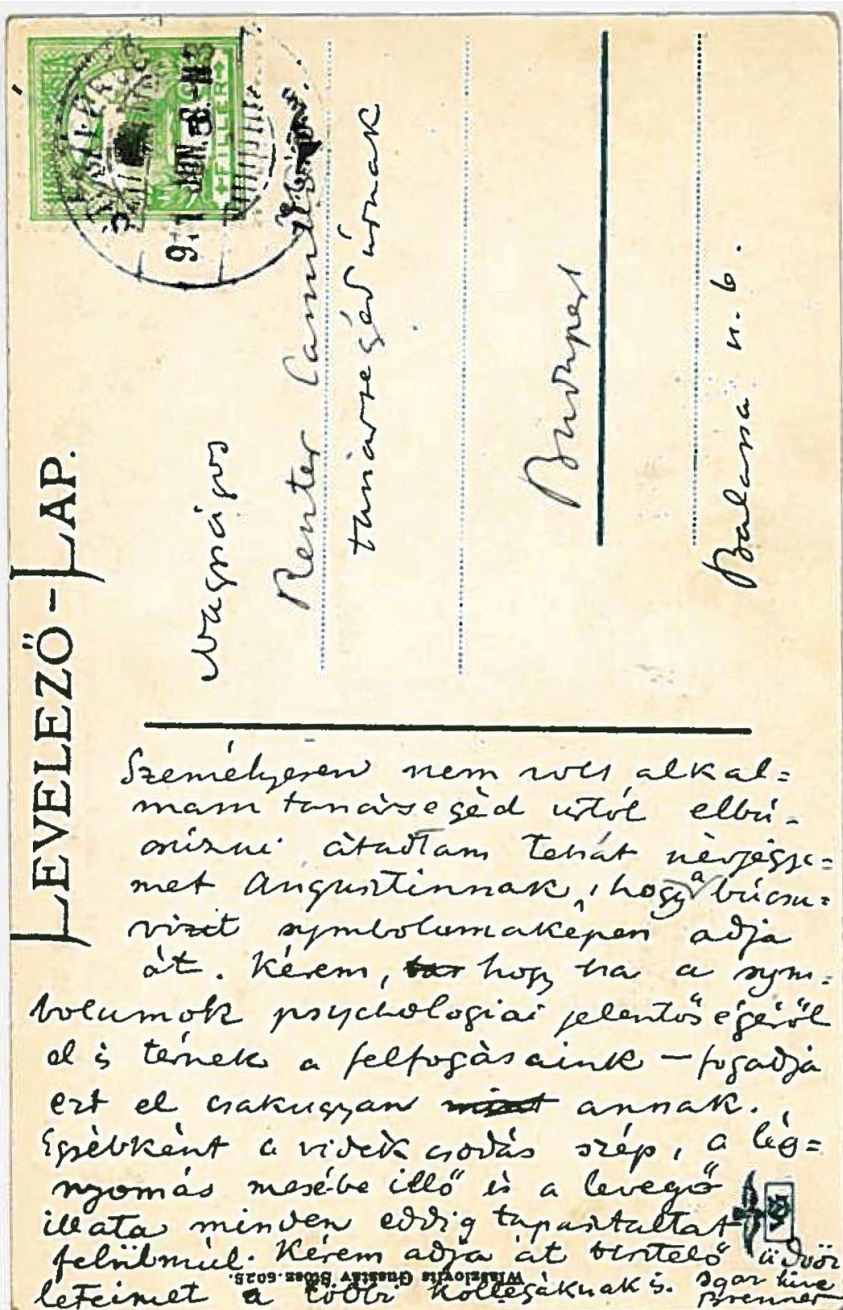 LEVELEZŐ-LAP.
FILLER
Nagyságos
Renter Camillo
tanársegéd úrnak
Budapest
Balassa u. 6.
Személyesen nem volt alkal=
mam tanársegéd úrtól elbú-
csúzni átadtam tehát névjegye-
met Augustinnak, hogy a búcsu=
vizit symbolumaképen adja
át. Kérem, hogy ha a sym=
bolumok psychologiai jelentőségéről
el is térnek a felfogásaink – fogadja
ezt el csakugyan annak.
Egyébként a vidék csodás szép, a lég=
nyomás mesébe illő és a levegő
illata minden eddig tapasztaltat
felülmúl. Kérem adja át tisztelő üdvöz
leteimet a többi kollegáknak is. Igaz híve
Brenner
Wlaszlovits Gusztáv 6025.